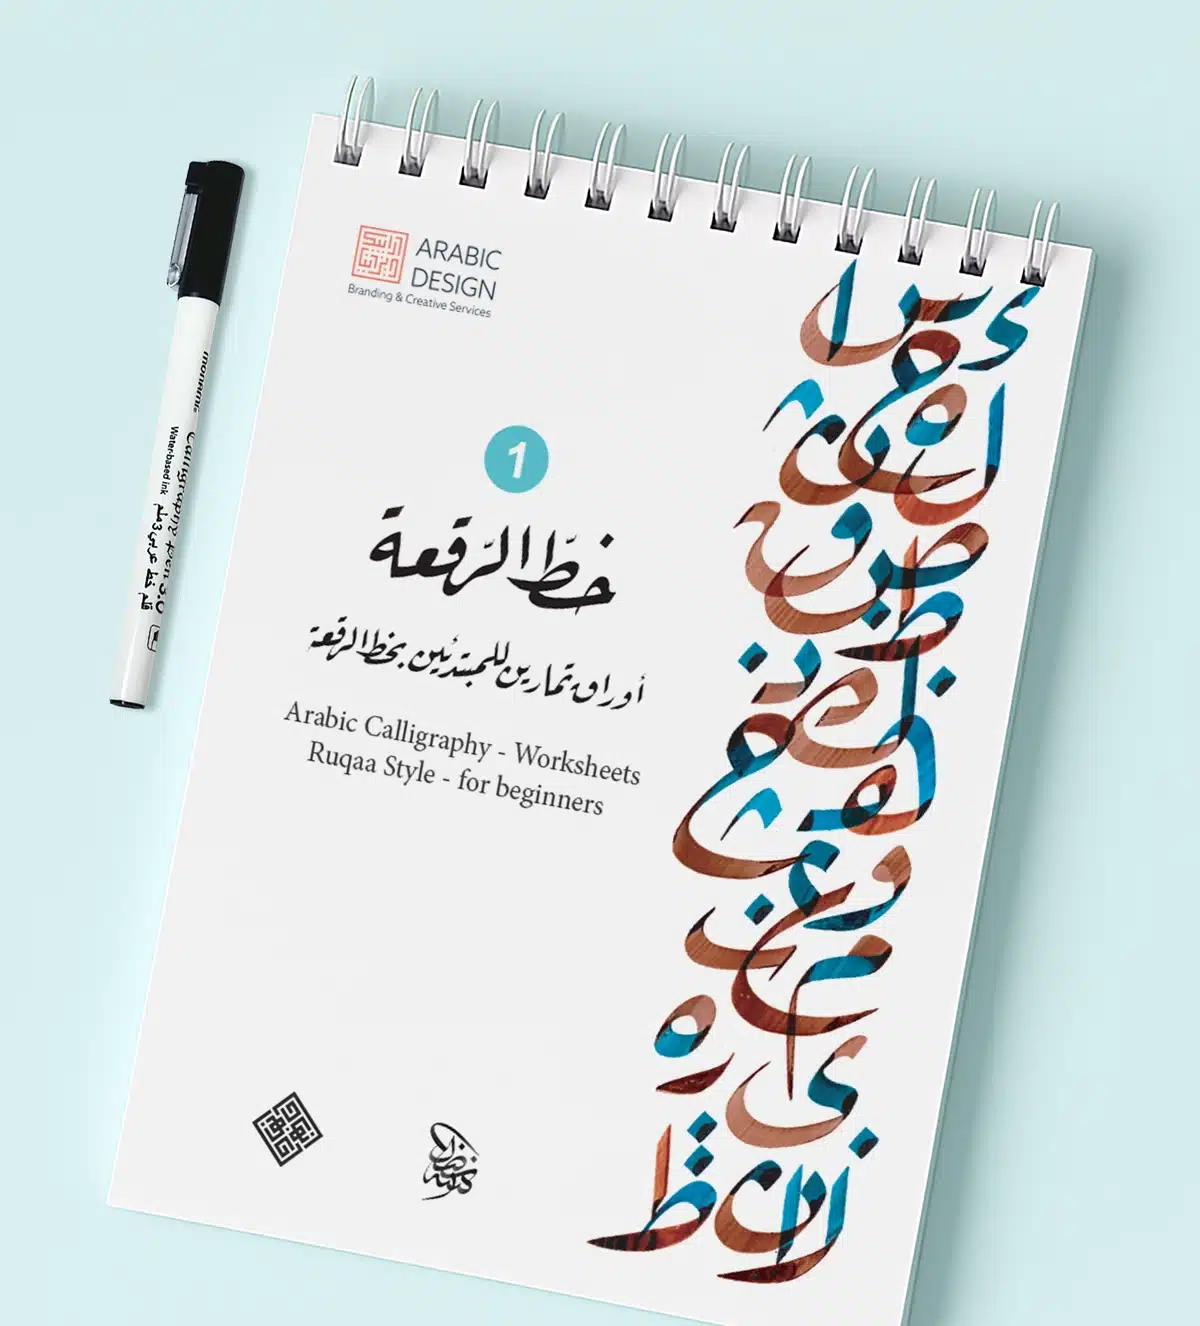 ARABIC
DESIGN
Branding & Creative Services
1
خطّ الرّقعة
أوراق تمارين للمبتدئين بخط الرقعة
Arabic Calligraphy - Worksheets
Ruqaa Style - for beginners
monami
Calligraphy Pen 3.0
Water-based ink
قلم خط عربي 3 ملم